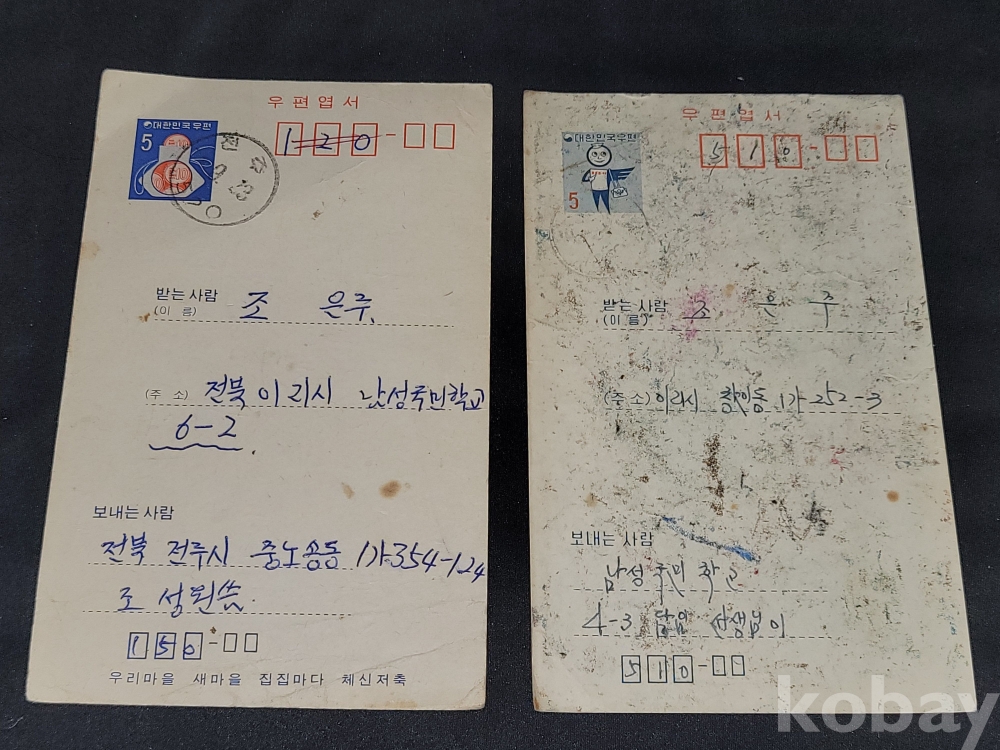 우편엽서
대한민국우편
5
전주
120
받는 사람
(이 름)
조 은주
(주 소) 전북 이리시 남성국민학교
6-2
보내는 사람
전북 전주시 중노송동 1가 354-124
조 성원씀
150
우리마을 새마을 집집마다 체신저축
우편엽서
대한민국우편
5
510
받는 사람
(이 름)
조 은 주
(주 소) 이리시 창인동 1가 252-3
보내는 사람
남성국민학교
4-3 담임 선생님이
510
kobay